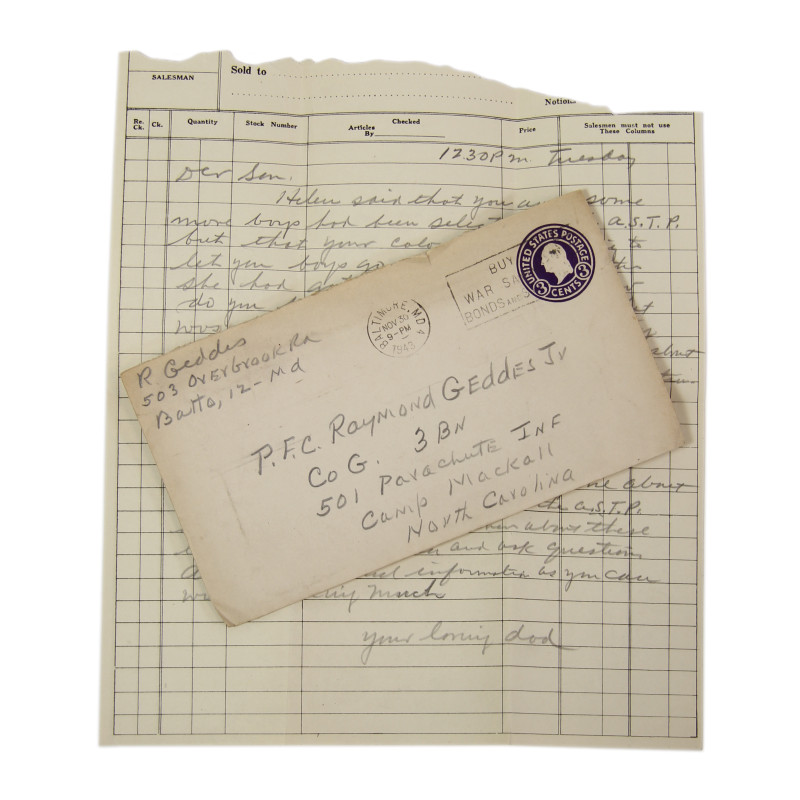 SALESMAN
Sold to
Notions
Re. Ck.
Ck.
Quantity
Stock Number
Articles
Checked By
Price
Salesmen must not use These Columns
12.30 P.m. Tuesday
Der Son.
Helen said that you a some
more boys had been sele a.S.T.P.
but that your colo to
let you boys go
she had
do you
was
about
R Geddes
503 Overbrook Rd
Balto, 12 - Md
BALTIMORE, MD 4
NOV 30
9-PM
1943
BUY
WAR SA
BONDS AND S
UNITED STATES POSTAGE
3 CENTS 3
P.F.C. Raymond Geddes Jr
Co G. 3 Bn
501 Parachute Inf
Camp Mackall
North Carolina
about
a.S.T.P.
about these
and ask questions
information as you can
much
your loving dad